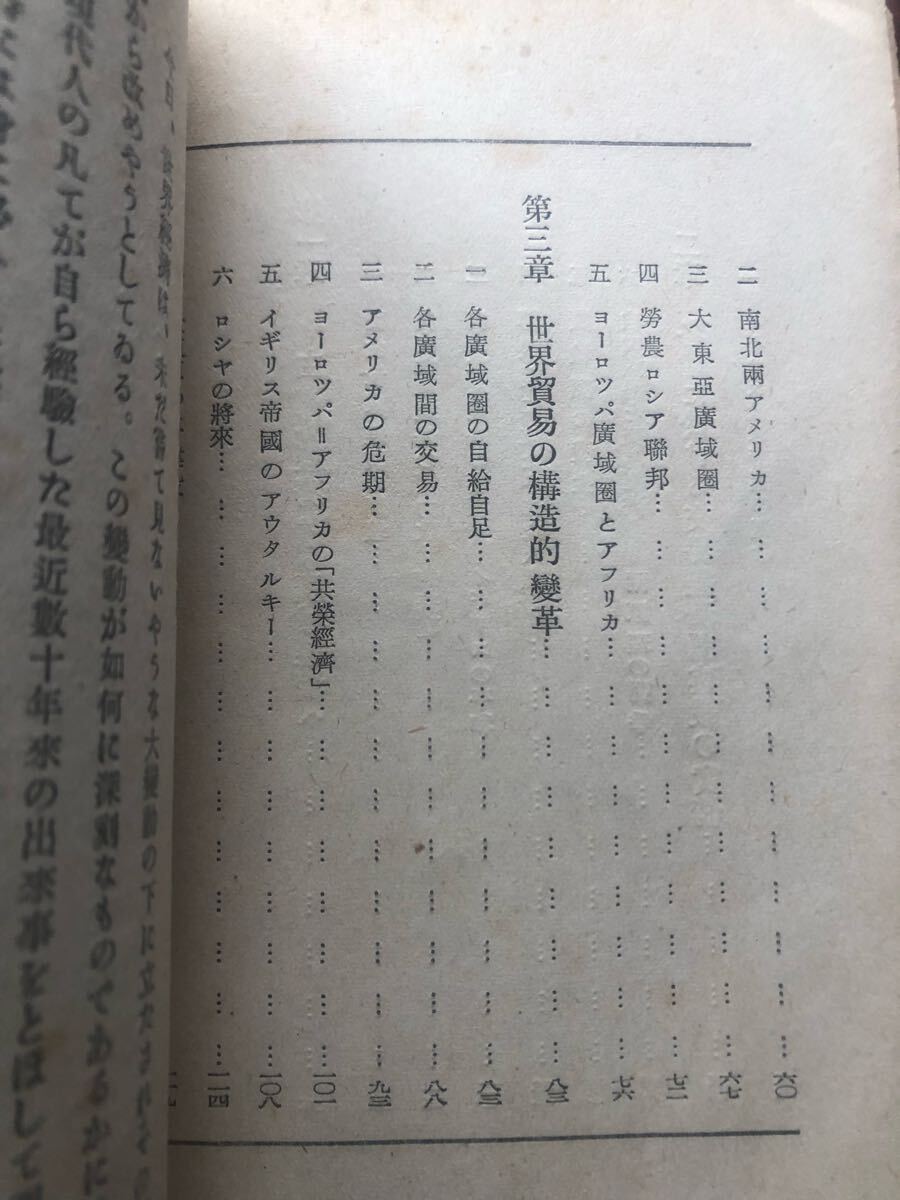 二　南北兩アメリカ…………………………六〇
三　大東亞廣域圈…………………………六七
四　勞農ロシア聯邦…………………………七二
五　ヨーロツパ廣域圈とアフリカ…………………………七六
第三章　世界貿易の構造的變革…………………………八三
一　各廣域圈の自給自足…………………………八三
二　各廣域間の交易…………………………八八
三　アメリカの危期…………………………九三
四　ヨーロツパ＝アフリカの「共榮經濟」…………………………一〇一
五　イギリス帝國のアウタルキー…………………………一〇八
六　ロシヤの將來…………………………一一四
から改めやうとしてゐる。この變動が如何に深刻なものであるかに
現代人の凡てが自ら經驗した最近數十年來の出來事をとほして